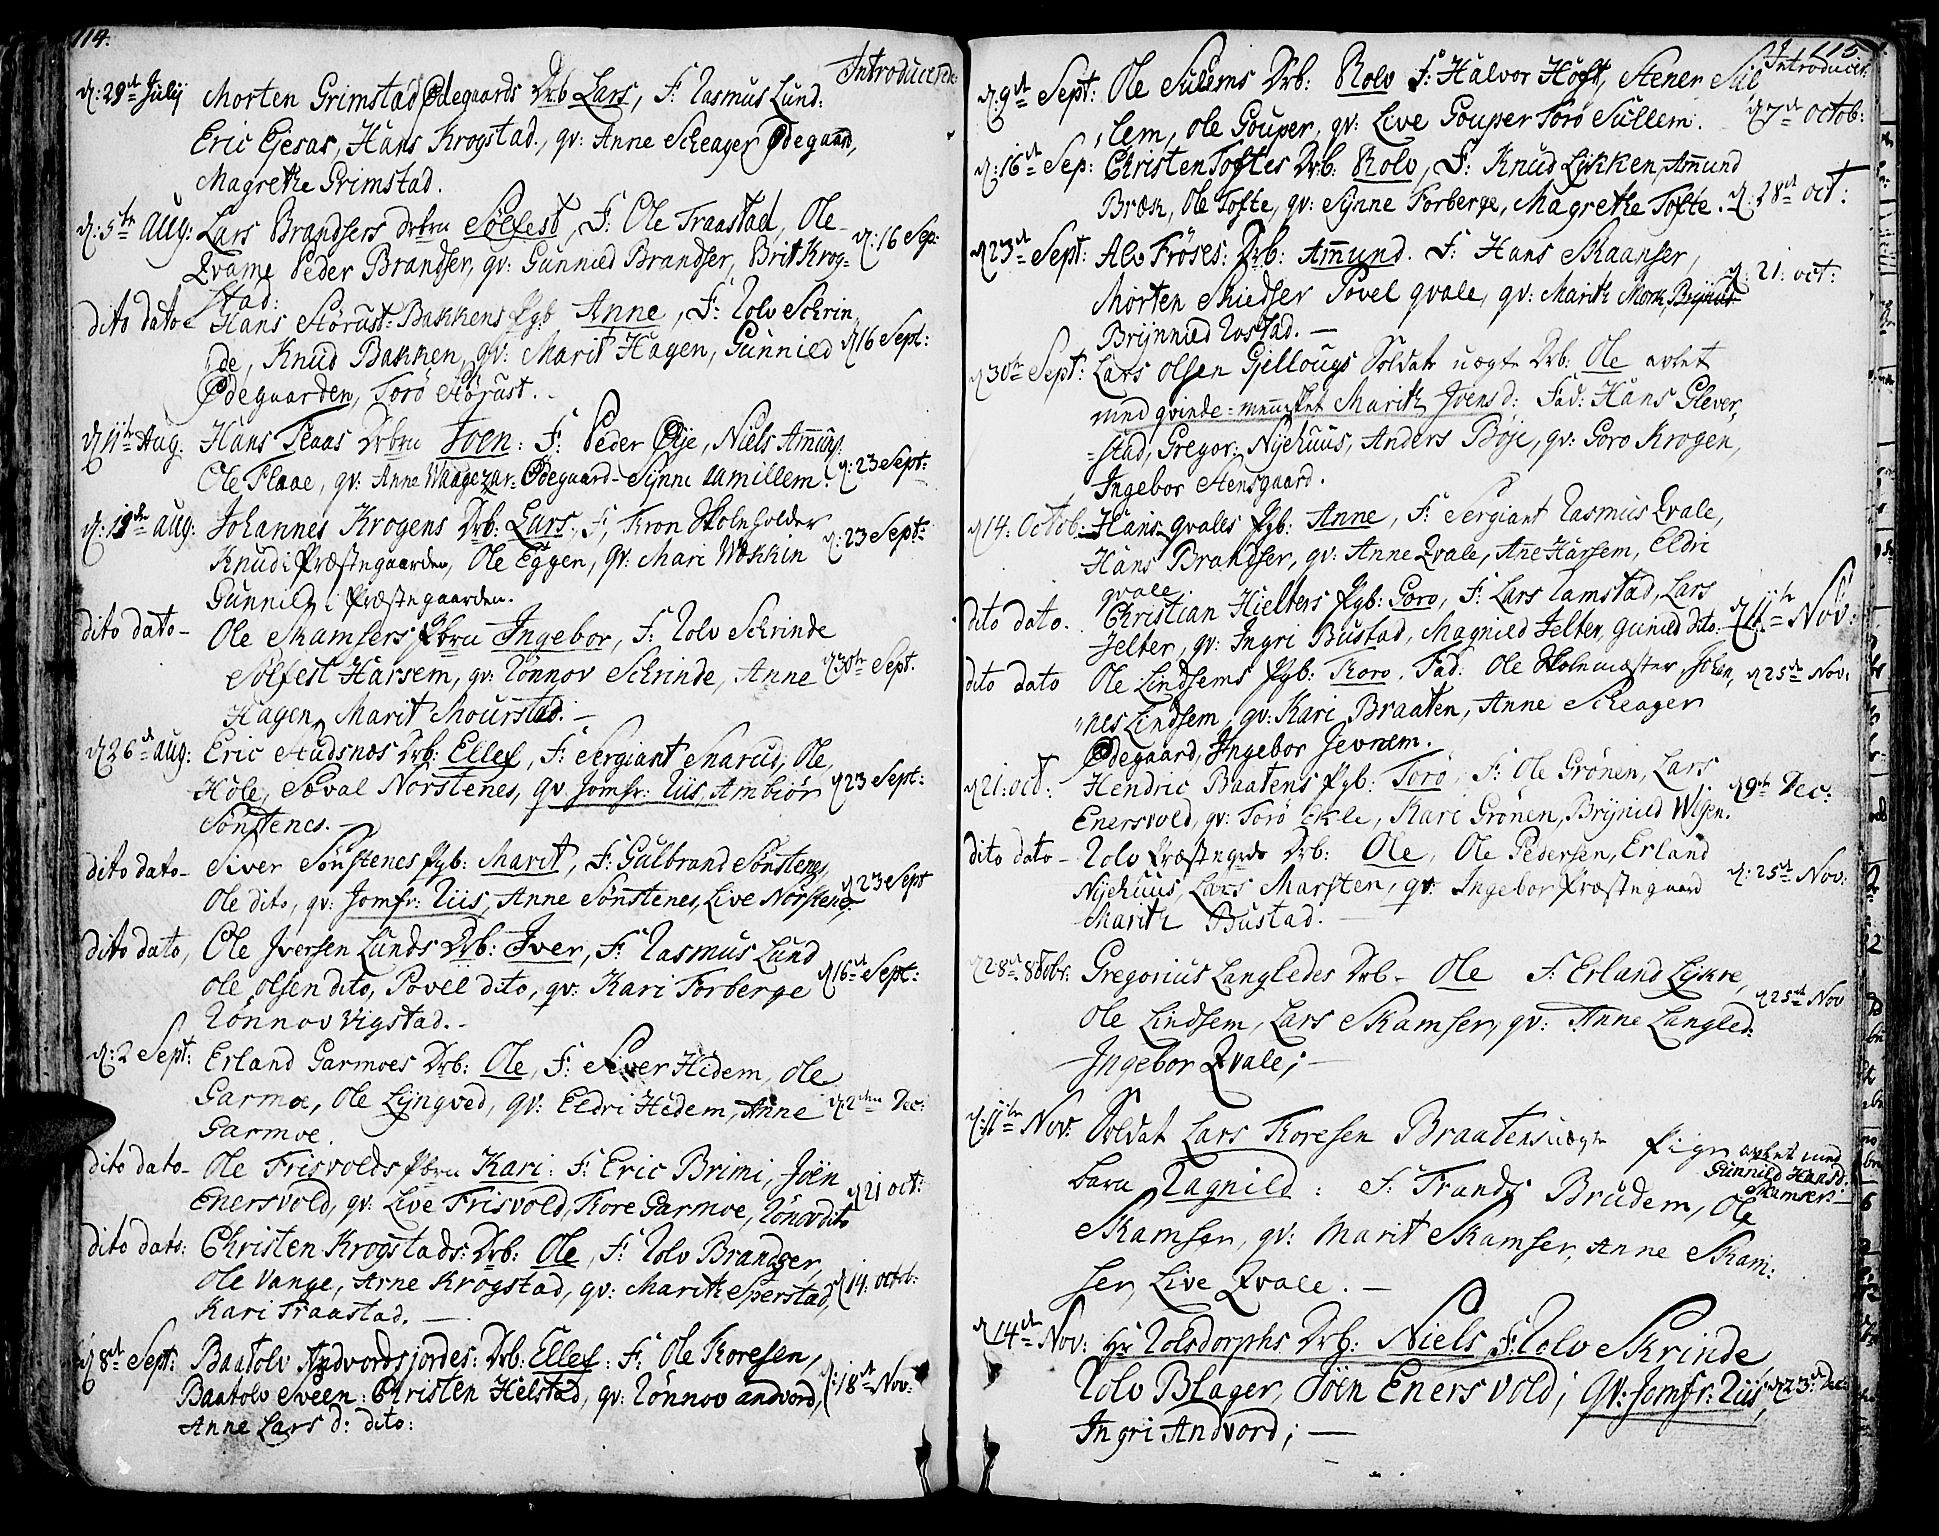 114.
Introducerede:
d: 29de Julij Morten Grimstad Ødegaards Drb Lars, F: Rasmus Lund:
Eric Gjesar, Hans Krogstad., qv: Anne Scheager Ødegaard,
Magrethe Grimstad.
d: 5te Aug: Lars Brandsers drbrn Sølfest, F: Ole Traastad, Ole d: 16 Sep:
Qvame Peder Brandser, qv: Gunnild Brandser, Brit Krog-
stad:
dito dato- Hans Størust-Bakkens Pgb Anne, F: Rolv Schrin d 16 Sept:
de, Knud Bakken, qv: Marit Hagen, Gunnild
Ødegaarden, Torø Størust.
d 11te Aug. Hans Flaas Drbrn Joen: F: Peder Øÿe, Niels Amund
Ole Flaae, qv: Anne Ødegaard- Sÿnne Ramillem. d: 23 Sept:
d: 19de aug: Johannes Krogens Drb: Lars, F: Skoleholder d: 23 Sept:
Knud i Præstegaarden, Ole Eggen, qv: Mari Wækkin
Gunnild i Præstegaarden.
dito dato- Ole Skamsers Pbrn Ingebor, F: Rolv Schrinde
Sølfest Harsem, qv: Rønnov Schrinde, Anne d 30te Sept.
Hagen, Marit Mourstad.-
d 26de aug: Eric Studsnæs Drb: Ellef, F: Sergiant Snarud, Ole
Hole, Sæval Norstenes, qv Jomfr: Riis, Ambiør d 23 Sept:
Sønstenes.-
dito dato- Siver Sønstenes Pgb: Marit, F: Gulbrand Sønstenes,
Ole dito, qv: Jomfr: Riis, Anne Sønstenes, Live Norstenes. d 23 Sept
dito dato, Ole Iversen Lunds Drb: Iver, F: Rasmus Lund
ole olsen dito, Povel dito, qv: Kari Forberge d 16de Sept:
Rønnov Vigstad.-
d: 2 Sept: Erland Garmoes Drb: Ole, F: Siver Hidem, ole
Garmoe, Ole Lÿngved, qv: Eldri Hidem, Anne d 2den Dec:
Garmoe.
dito dato- Ole Frisvolds Pbrn Kari: F: Eric Brimi, Joen
Enersvold, qv: Live Frisvold, Tore Garmoe, Rønov dito d 21 oct:
dito dato: Christen Krogstads: Drb: Ole, F: Rolv Brandser,
Ole Vange, Arne Krogstad, qv: Marith Sperstad, d 14: octob:
Kari Traastad.
d 8de Sept: Baatolv Andvordsjordes: Drb: Ellef: F: Ole Toresen,
Baatolv Sveen: Christen Helstad, qv: Rønnov andvord, d: 18de Nov:
Anne Lars d: dito:
115.
Introducer:
d: 9de Sept: Ole Sulems Drb: Rolv F: Halvor Hoft, Stener Sul
lem, ole Gouper, qv: Live Gouper Torø Sullem. d 7de Octob:
d: 16de Sep: Christen Toftes Drb: Rolv, F: Knud Lÿkken, Amund
Bræk, Ole Tofte, qv: Sÿnne Forberge, Magrethe Tofte. d: 28de oct:
d 23de Sept: Alv Frøses: Drb: Amund. F: Hans Skaanser,
Morten Skiedser Povel qvale, qv: Marith Mork, d: 21: oct:
Brÿnnild Rostad.-
d 30te Sept: Lars olsen Gjellougs Soldats uægte Drb: Ole avlet
med qvinde-mennisket Marith Joensd: Fad: Hans Glever-
stad, Gregor: Nÿehuus, Anders Bøje, qv: Goro Krogen,
Ingebor Stensgaard.
d 14. Octob: Hans qvales Pgb: Anne, F: Sergiant Rasmus Qvale,
Hans Brandser, qv: Anne Qvale, Ane Harsem, Eldri
qvale.
dito dato. Christian Hielters Pgb: Goro, F: Lars Ramstad, Lars
Jelter, qv: Ingri Bustad, Magnild Jelter, Gunild dito. d 11te Nov:
dito dato Ole Lindsems Pgb: Thoro. Fad: Ole Skolemæster, Johan, d 25de Nov:
nes Lindsem, qv: Kari Braaten, Anne Scheager
Ødegaard, Ingebor Jevnem.
d 21: oct: Hendric Baatens Pgb: Torø, F: Ole Grønen, Lars d 9de Dec:
Enersvold, qv: Torø Ekle, Kari Grønen, Brÿnild Wigen.
dito dato- Rolv Præstegrds Drb: Ole, Ole Pedersen, Erland
Nÿehuus, Lars Marsten, qv: Ingebor Præstegaard d: 25de Nov:
Marith Bustad.
d 28de 8tobr: Gregorius Langledes Drb- Ole F: Erland Lÿkre,
Ole Lindsem, Lars Skamser, qv: Anne Langled. d 25de Nov
Ingebor Qvale;-
d: 11te Nov: Soldat Lars Toresen Braatens uægte Pige avlet med
Gunnild Hansd:
Skamser:-
barn Ragnild: F: Trands Brudem, Ole
Skamser, qv: Marit Skamser, Anne Skam:
ser, Live Qvale.-
d 14de Nov: Hr Rolsdorphs Drb: Niels F: Rolv Skrinde,
Rolv Blager, Joen Enersvold; qv: Jomfr: Riis, d 23de Dec:
Ingri Andvord;-